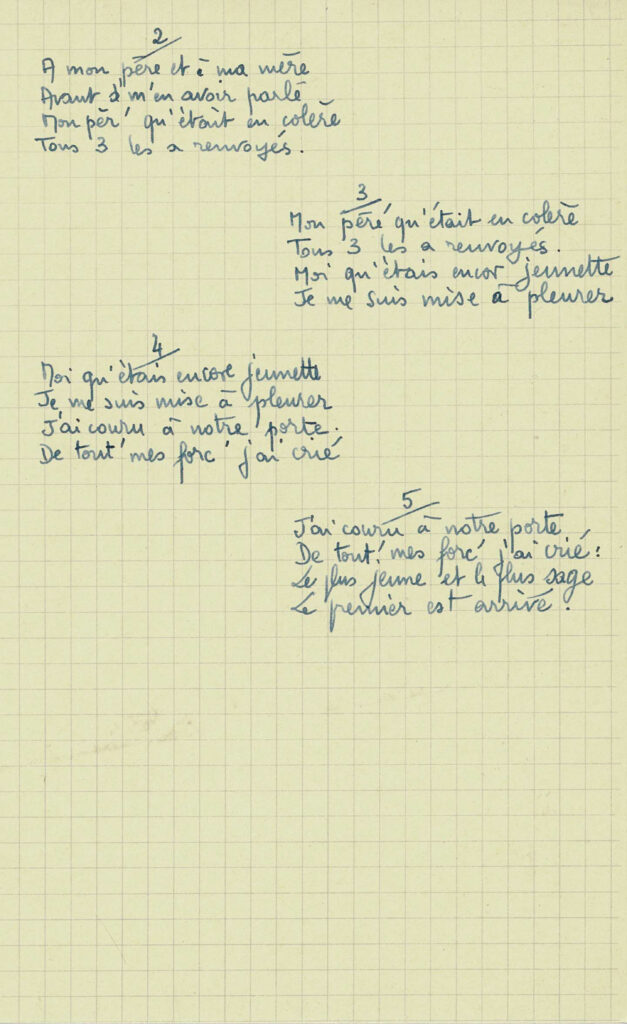 2
A mon père et à ma mère
Avant d'm'en avoir parlé
Mon pèr' qu'était en colère
Tous 3 les a renvoyés.
3
Mon père' qu'était en colère
Tous 3 les a renvoyés.
Moi qu'étais encor jeunette
Je me suis mise à pleurer
4
Moi qu'étais encore jeunette
Je me suis mise à pleurer
J'ai couru à notre porte.
De tout' mes forc' j'ai crié
5
J'ai couru à notre porte
De tout' mes forc' j'ai crié :
Le plus jeune et le plus sage
Le premier est arrivé.